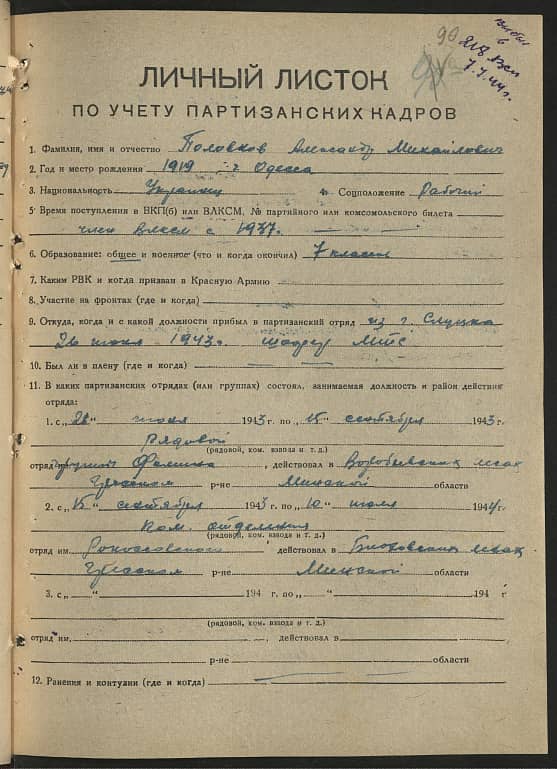 90
7.7.44 г.
ЛИЧНЫЙ ЛИСТОК
ПО УЧЕТУ ПАРТИЗАНСКИХ КАДРОВ
1. Фамилия, имя и отчество Половков Александр Михайлович
2. Год и место рождения 1919 г. Одесса
3. Национальность Украинец 4. Соцположение Рабочий
5. Время поступления в ВКП(б) или ВЛКСМ, № партийного или комсомольского билета
член ВЛКСМ с 1937.
6. Образование: общее и военное (что и когда окончил) 7 классов
7. Каким РВК и когда призван в Красную Армию
8. Участие на фронтах (где и когда)
9. Откуда, когда и с какой должности прибыл в партизанский отряд из г. Слуцка
26 июня 1943 г. шофер МТС
10. Был ли в плену (где и когда)
11. В каких партизанских отрядах (или группах) состоял, занимаемая должность и район действия
отряда:
1. с „28“ июня 1943 г. по „15“ сентября 1943 г.
Рядовой
(рядовой, ком. взвода и т. д.)
отряд , действовал в лесах
р-не Минской области
2. с „15“ сентября 1943 г. по „10“ июля 1944 г.
Ком. отделения
(рядовой, ком. взвода и т. д.)
отряд им. Рокоссовского действовал в лесах
р-не Минской области
3. с „ “ 194 г. по „ “ 194 г
(рядовой, ком. взвода и т. д.)
отряд им. , действовал в
р-не области
12. Ранения и контузии (где и когда)